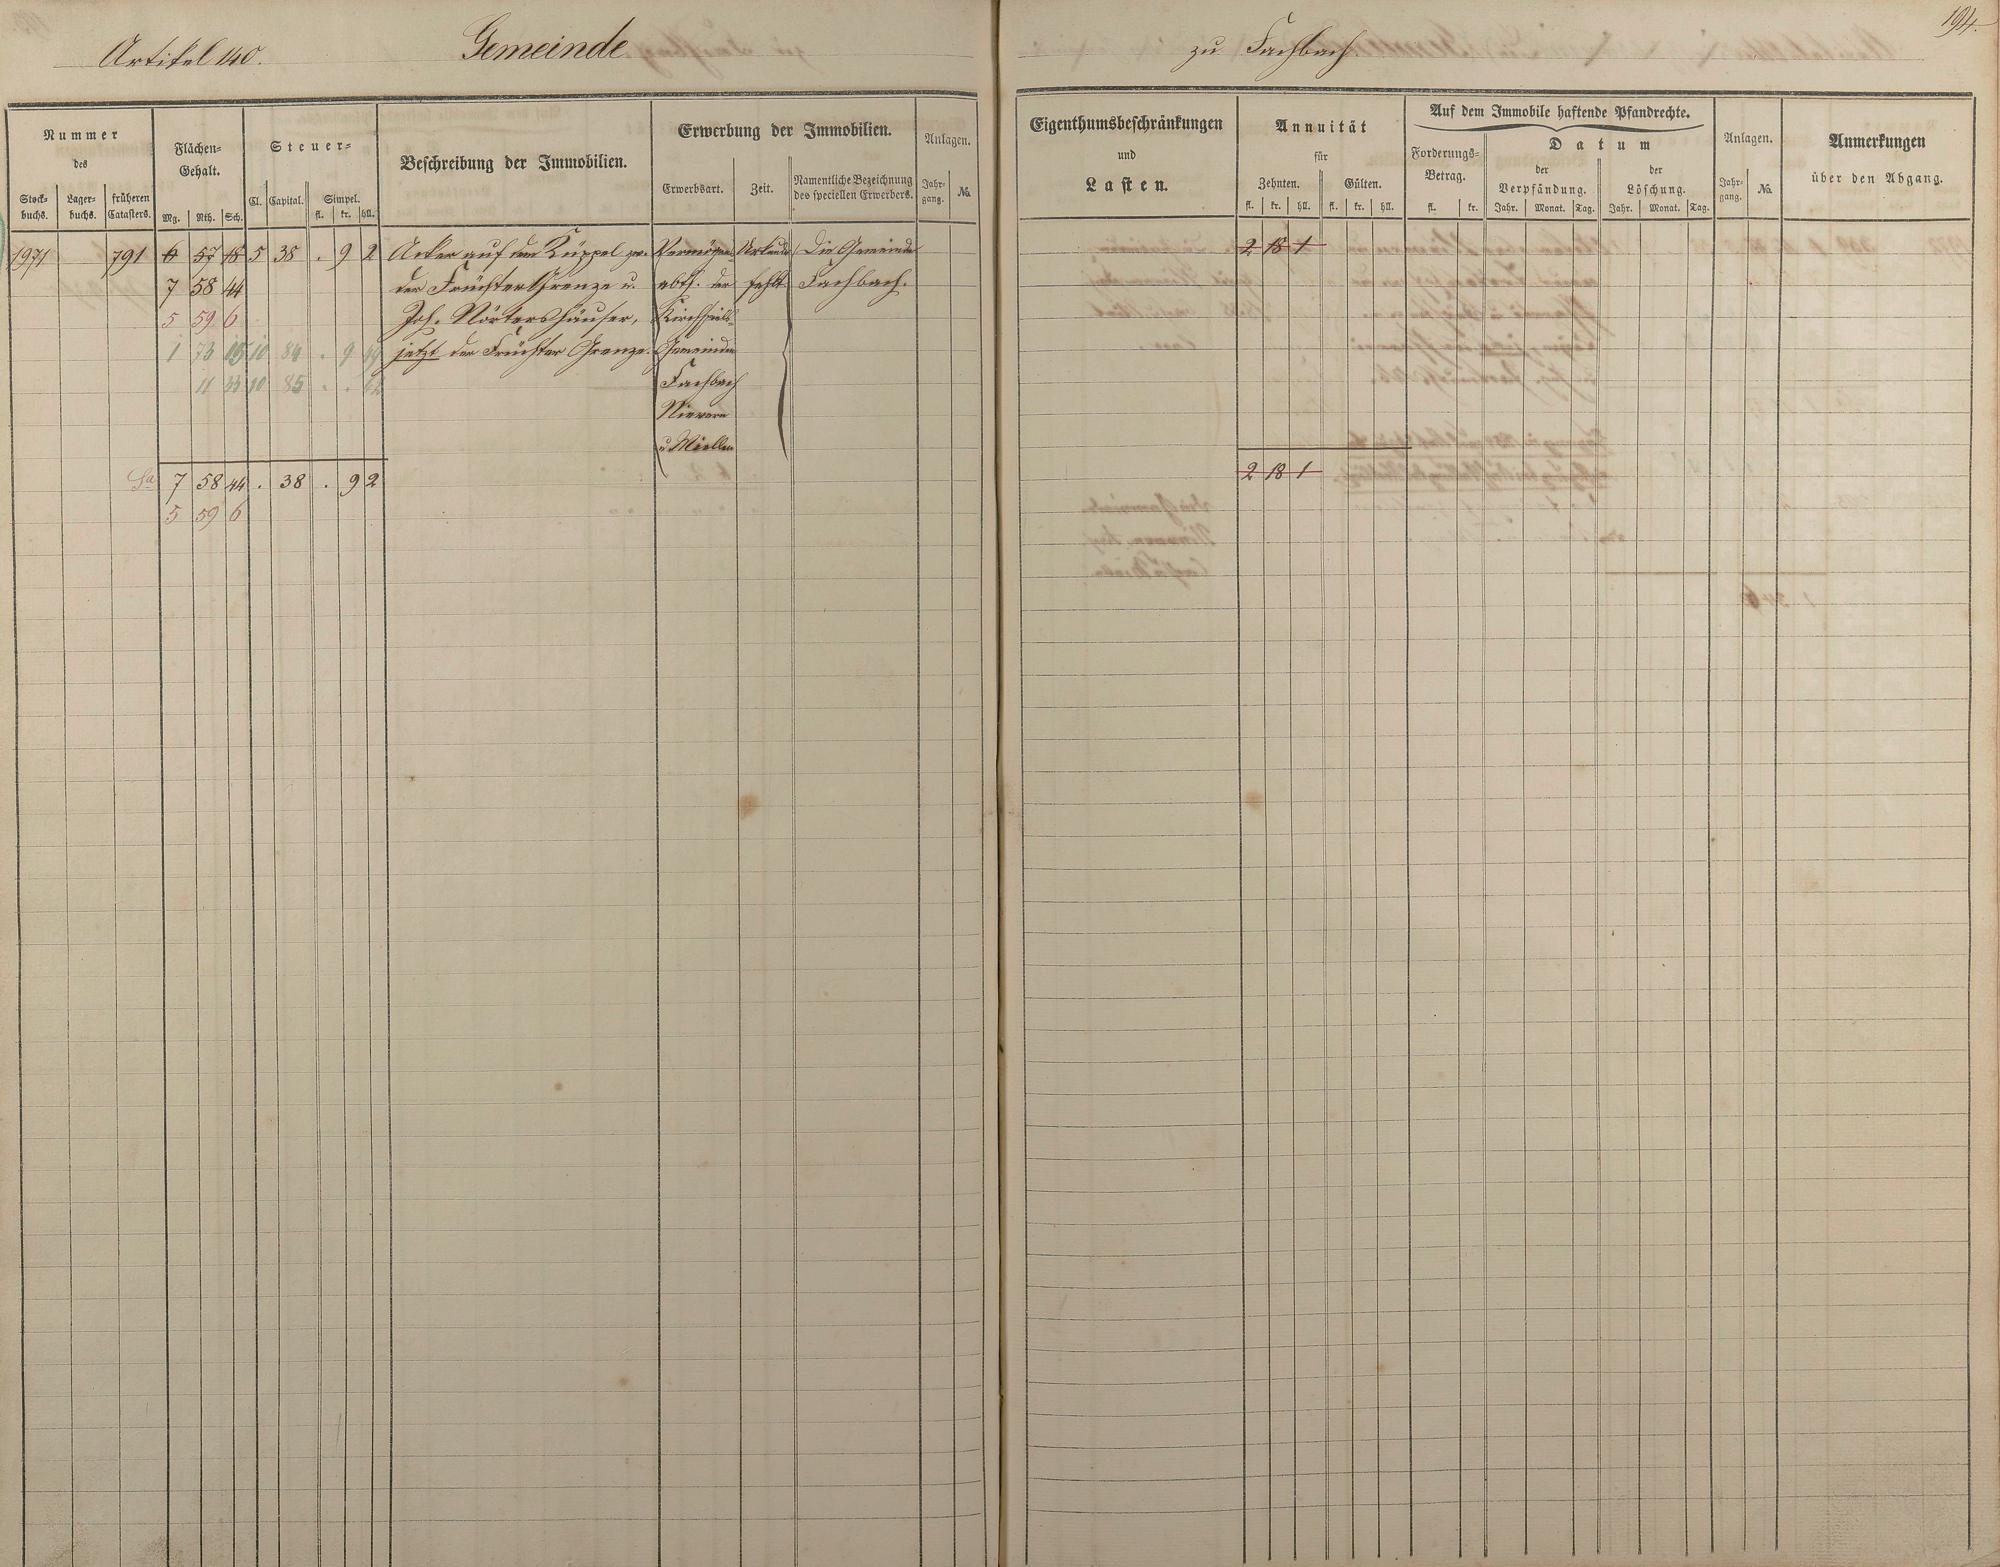 Artikel 140. Gemeinde zu Fachbach. 194.
Nummer
des
Stock-buchs. Lager-buchs. früheren Catasters.
Flächen-Gehalt.
Mg. Rth. Sch.
Steuer-
Cl. Capital. Simpel.
fl. kr. hll.
Beschreibung der Immobilien.
Erwerbung der Immobilien.
Erwerbsart. Zeit. Namentliche Bezeichnung des speciellen Erwerbers.
Anlagen.
Jahr-gang. No.
Eigenthumsbeschränkungen
und
Lasten.
Annuität
für
Zehnten. Gülten.
fl. kr. hll. fl. kr. hll.
Auf dem Immobile haftende Pfandrechte.
Forderungs-Betrag.
fl. kr.
Datum
der Verpfändung. der Löschung.
Jahr. Monat. Tag. Jahr. Monat. Tag.
Anlagen.
Jahr-gang. No.
Anmerkungen
über den Abgang.
1971 791 6 57 18 5 38 . 9 2 Acker auf dem Küppel zw. Vermögens Urkunde Die Gemeinde 2 18 1
7 58 44 der Früchter Grenze u. abth. der fehlt Fachbach.
5 59 6 Joh. Nörtershäuser, Kirchspiels-
1 73 10 84 . 9 jetzt der Früchter Grenze. Gemeinden
11 33 10 85 . . Fachbach
Nievern
u. Miellen
Sa 7 58 44 . 38 . 9 2 2 18 1
5 59 6